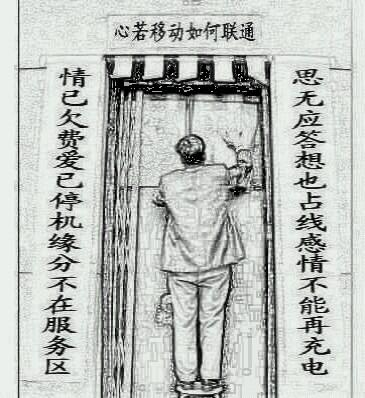 心若移动如何联通
情已欠费爱已停机缘分不在服务区
思无应答想也占线感情不能再充电